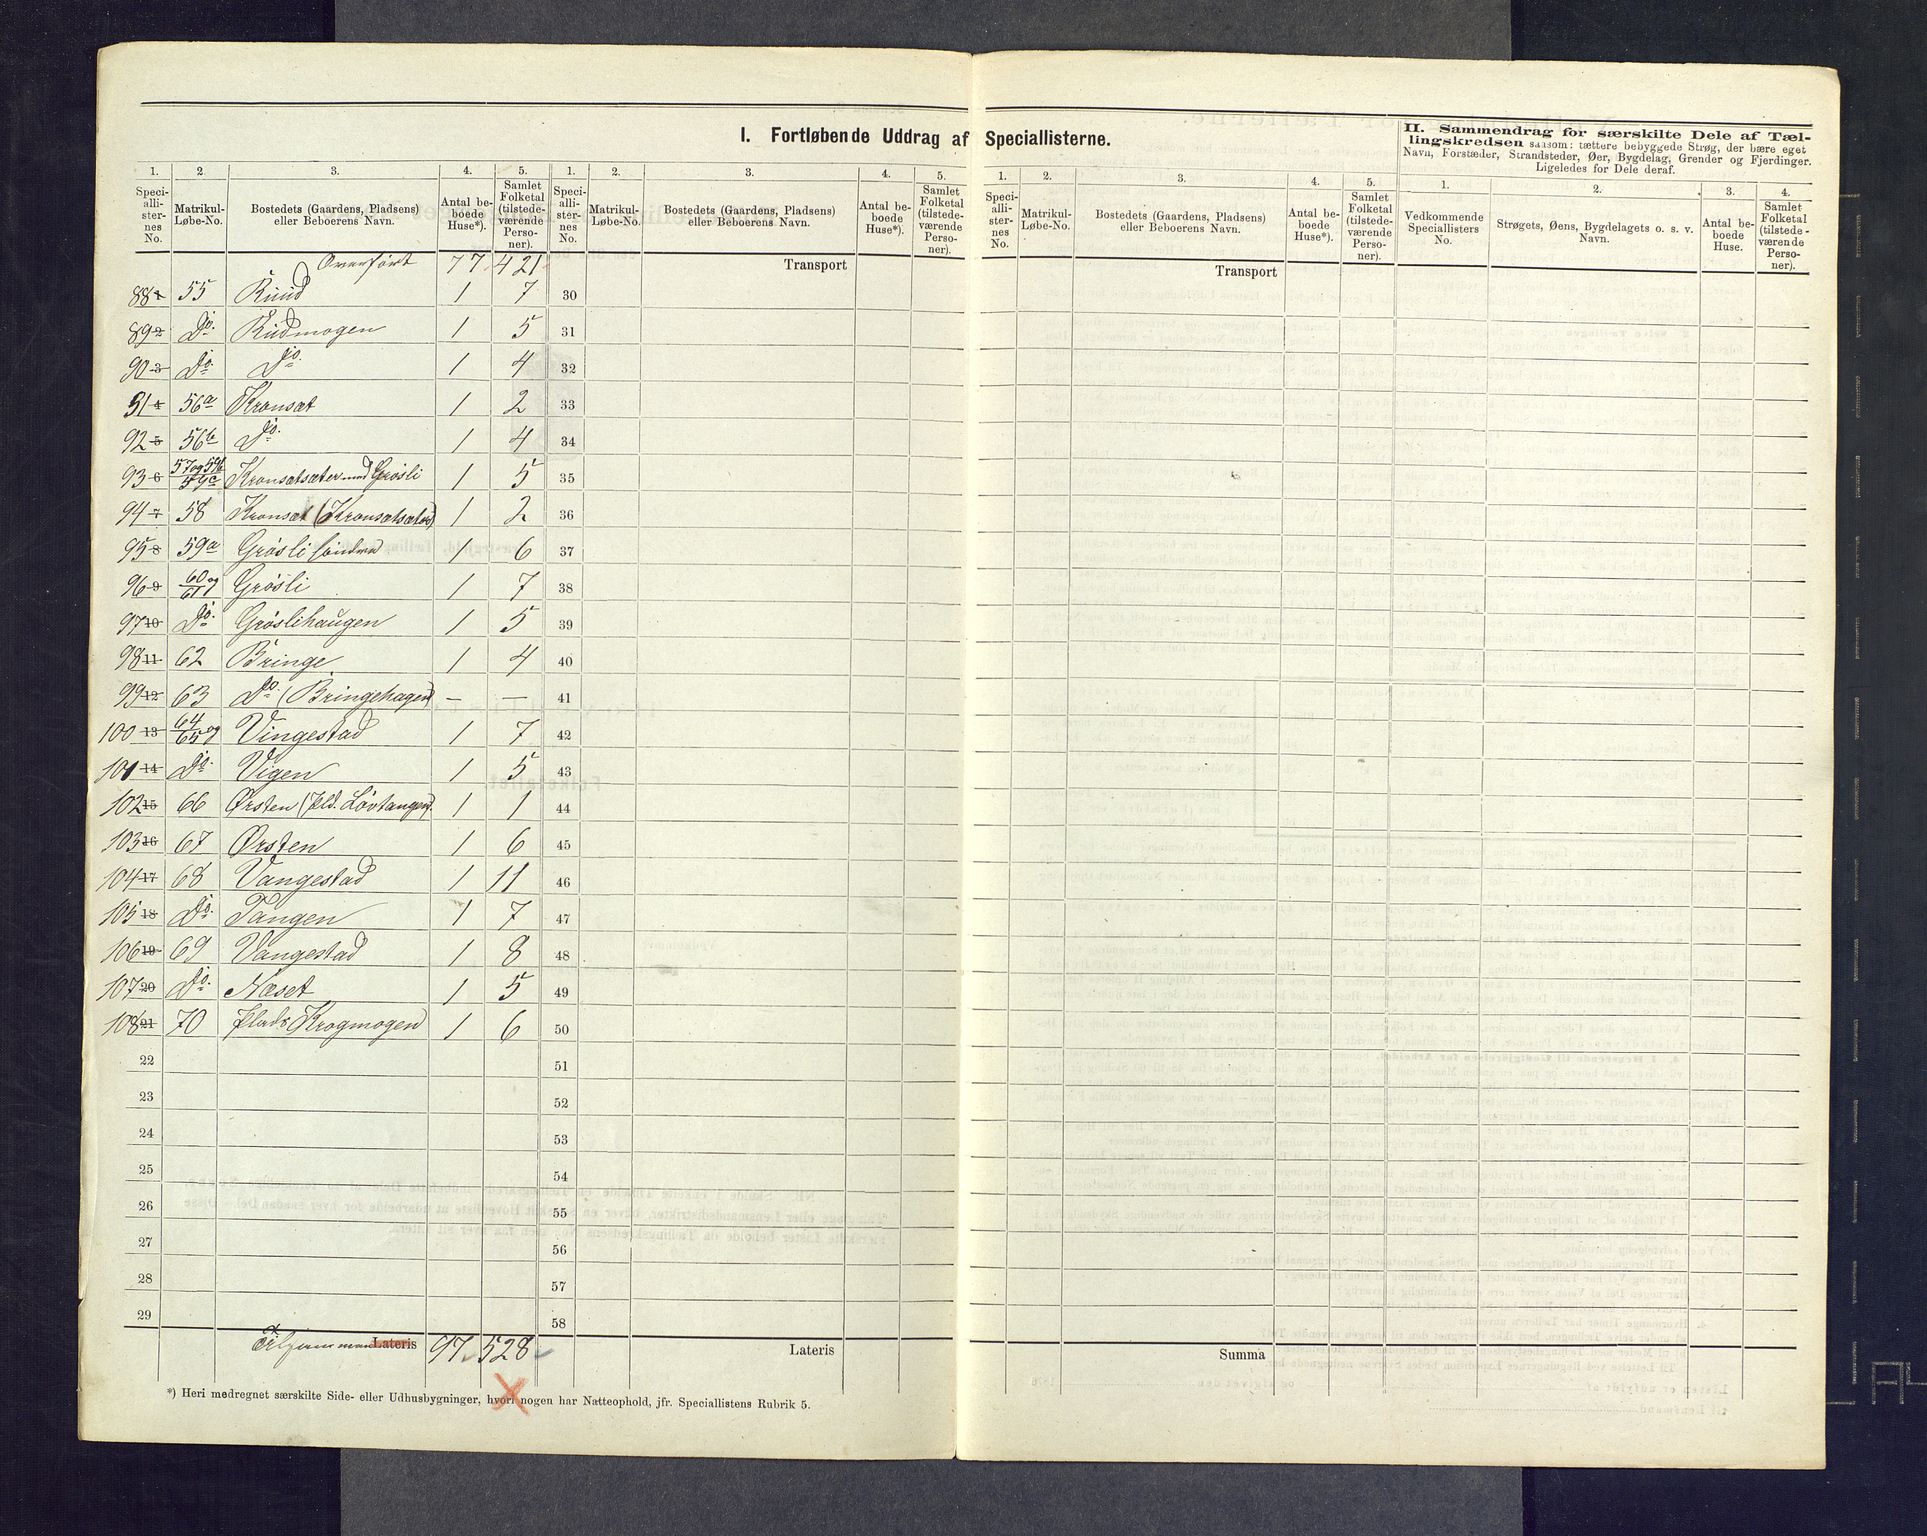 I. Fortløbende Uddrag af Speciallisterne.
II. Sammendrag for særskilte Dele af Tæl-
lingskredsen saasom: tættere bebyggede Strøg, der bære eget
Navn, Forstæder, Strandsteder, Øer, Bygdelag, Grender og Fjerdinger.
Ligeledes for Dele deraf.
1. 2 3. 4. 5. 1. 2. 3. 4. 5. 1. 2. 3. 4. 5. 1. 2. 3. 4.
Speci-alli-ster-nes No. Matrikul-Løbe-No. Bostedets (Gaardens, Pladsens) eller Beboerens Navn. Antal be-boede Huse*). Samlet Folketal (tilstede-værende Perso-ner).
Speci-alli-ster-nes No. Matrikul-Løbe-No. Bostedets (Gaardens, Pladsens) eller Beboerens Navn. Antal be-boede Huse*). Samlet Folketal (tilstede-værende Perso-ner).
Speci-alli-ster-nes No. Matrikul-Løbe-No. Bostedets (Gaardens, Pladsens) eller Beboerens Navn. Antal be-boede Huse*). Samlet Folketal (tilstede-værende Perso-ner).
Vedkommende Speciallisters No. Strøgets, Øens, Bygdelagets o. s. v. Navn. Antal be-boede Huse. Samlet Folketal (tilstede-værende Perso-ner).
Overført 77 421 Transport Transport
88 1 55 Ruud 1 7 30
89 2 Do. Rudmogen 1 5 31
90 3 Do. Do. 1 4 32
91 4 56a Kronsæt 1 2 33
92 5 56b Do. 1 4 34
93 6 57 og 59b 59c Kronsætsæter med Grösli 1 5 35
94 7 58 Kronsæt (Kronsætsæter) 1 2 36
95 8 59a Grösli söndre 1 6 37
96 9 60 og 61 Grösli 1 7 38
97 10 Do. Gröslihaugen 1 5 39
98 11 62 Bringe 1 4 40
99 12 63 Do. (Bringehagen) — — 41
100 13 64 og 65 Vingestad 1 7 42
101 14 Do. Vigen 1 5 43
102 15 66 Ørsten (pld. Lövtangen). 1 1 44
103 16 67 Ørsten 1 6 45
104 17 68 Vangestad 1 11 46
105 18 Do. Tangen 1 7 47
106 19 69 Vangestad 1 8 48
107 20 Do. Næset 1 5 49
108 21 70 plads Krogmogen 1 6 50
22 51
23 52
24 53
25 54
26 55
27 56
28 57
29 58
Tilsammen Lateris 97 528 Lateris Summa
*) Heri medregnet særskilte Side- eller Udhusbygninger, hvori nogen har Natteophold, jfr. Speciallistens Rubrik 5.